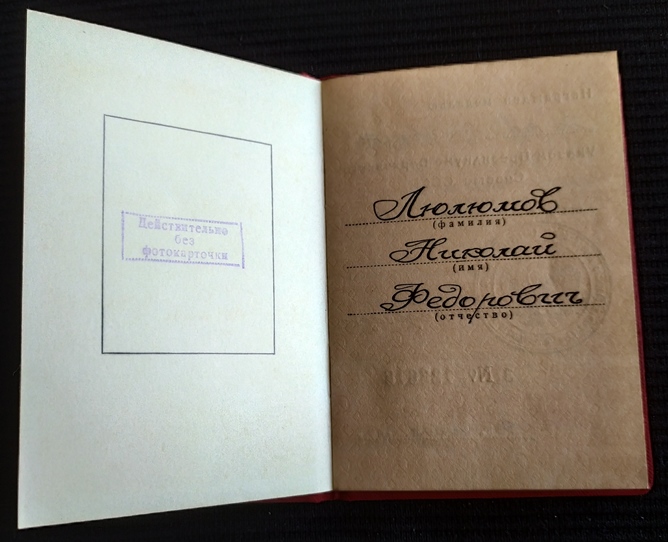 Действительно
без
фотокарточки
Люлюмов
(фамилия)
Николай
(имя)
Федорович
(отчество)